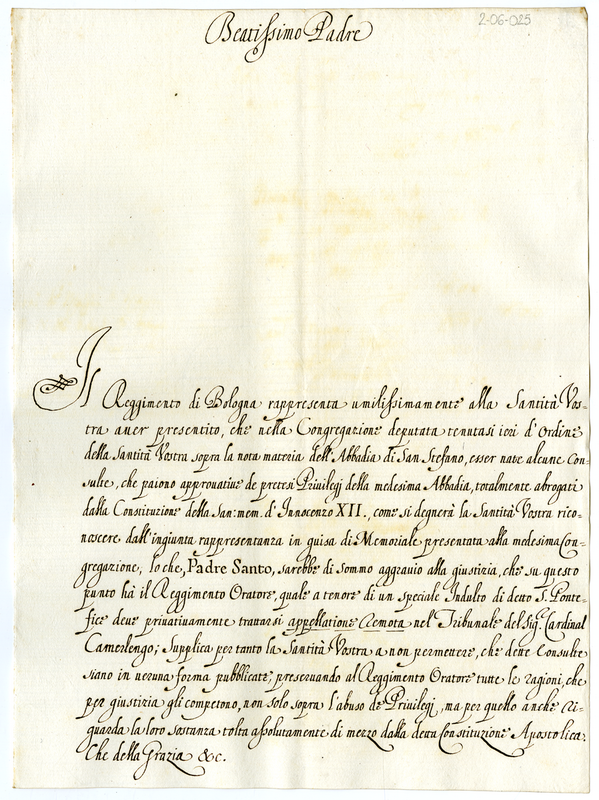 2-06-025
Beatissimo Padre
Il Reggimento di Bologna rappresenta umilissimamente alla Santità Vos-
tra aver presentito, che nella Congregazione deputata tenutasi ieri d'Ordine
della Santità Vostra sopra la nota materia dell'Abbadia di San Stefano, esser nate alcune Con-
sulte, che paiono approvative de pretesi Privilegj della medesima Abbadia, totalmente abrogati
dalla Constituzione della San: mem. d'Innocenzo XII., come si degnerà la Santità Vostra rico-
noscere dall'ingiunta rappresentanza in guisa di Memoriale presentata alla medesima Con-
gregazione, lo che, Padre Santo, sarebbe di sommo aggravio alla giustizia, che su questo
punto hà il Reggimento Oratore, quale a tenore di un speciale Indulto di detto S. Ponte-
fice deve privativamente trattarsi appellatione remota nel Tribunale del Sig.r Cardinal
Camerlengo; Supplica per tanto la Santità Vostra a non permettere, che dette Consulte
siano in veruna forma pubblicate, preservando al Reggimento Oratore tutte le ragioni, che
per giustizia gli competono, non solo sopra l'abuso de Privilegj, ma per quello anche ri-
guarda la loro sostanza tolta assolutamente di mezzo dalla detta Constituzione Apostolica.
Che della Grazia &c.